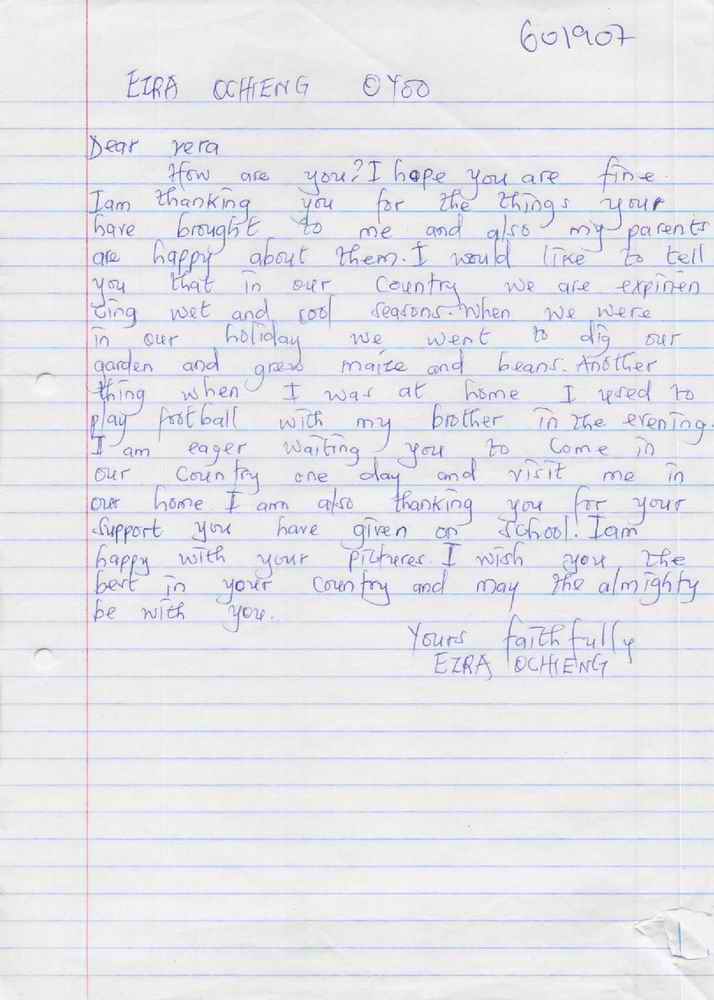 601907
EZRA OCHIENG OYOO
Dear vera
How are you? I hope you are fine.
Iam thanking you for the things your
have brought to me and also my parents
are happy about them. I would like to tell
you that in our Country we are expirien
cing wet and cool seasons. When we were
in our holiday we went to dig our
garden and grew maize and beans. Another
thing when I was at home I used to
play football with my brother in the evening.
I am eager waiting you to come in
our Country one day and visit me in
our home. I am also thanking you for your
support you have given on school. Iam
happy with your pictures. I wish you the
best in your Country and may the almighty
be with you.
Yours faithfully
EZRA OCHIENG